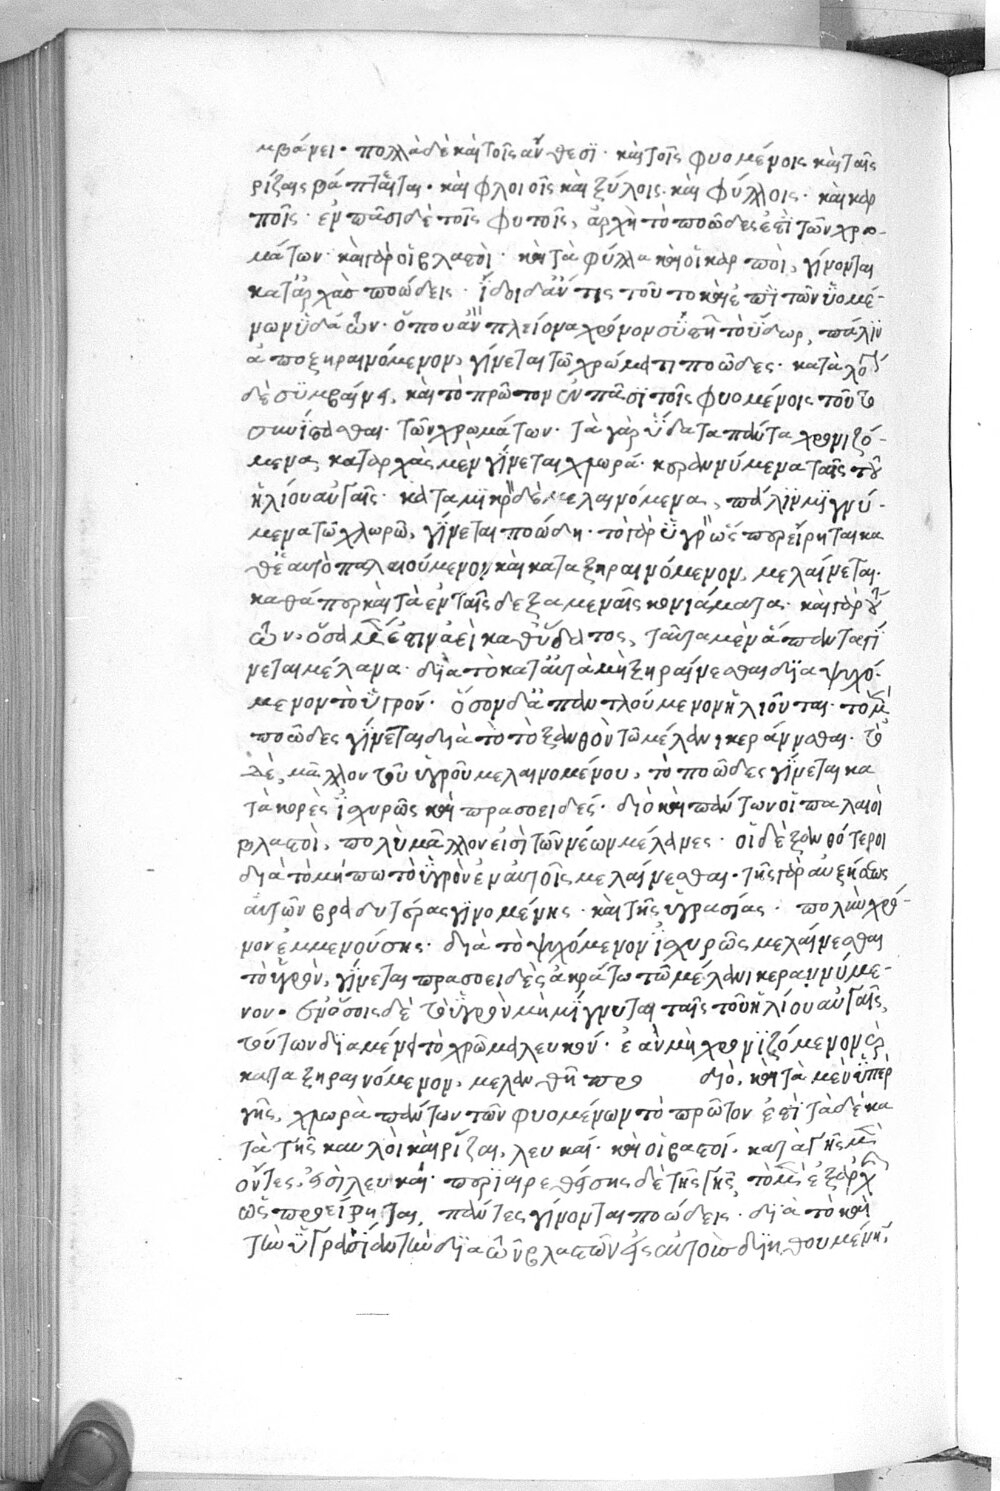 μβάνει· πολλὰ δὲ καὶ τοῖς ἄνθεσϊ· καὶ τοῖς φυομένοις καὶ ταῖς
ρίζαις βάπτεται· καὶ φλοιοῖς καὶ ξύλοις· καὶ φύλλοις· καὶ καρ
ποῖς· ἐν πᾶσι δὲ τοῖς φυτοῖς, ἀρχὴ τὸ ποῶδες ἐστὶ τῶν χρω-
μάτων· καὶ γὰρ οἱ βλαστοὶ· καὶ τὰ φύλλα καὶ οἱ καρποὶ, γίνονται
κατ' ἀρχὰς ποώδεις· ἴδοι δ' ἄν τις τοῦτο καὶ ἐπὶ τῶν ὑομέ-
νων ὑδάτων· ὅπου ἂν πλείονα χρόνον συστῆ τὸ ὕδωρ, πάλϊν
ἀποξηραινόμενον, γίνεται τῶ χρώματι ποῶδες· κατὰ λόγον
δὲ συμβαίνει, καὶ τὸ πρῶτον ἐν πᾶσϊ τοῖς φυομένοις τοῦτο
συνίστασθαι τῶν χρωμάτων· τὰ γὰρ ὕδατα πάντα χρονιζό-
μενα, κατ' ἀρχὰς μὲν γίνεται χλωρά· κεραννύμενα ταῖς τοῦ
ἡλίου αὐγαῖς· κατὰ μϊκρὸν δὲ μελαινόμενα, πάλϊν μϊγνύ-
μενα τῶ χλωρῶ, γίνεται ποώδη· τὸ γὰρ ὑγρὸν ὥσπερ εἴρηται κα
θ' ἑαυτὸ παλαιούμενον καὶ καταξηραινόμενον, μελαίνεται·
καθάπερ καὶ τὰ ἐν ταῖς δεξαμεναῖς κονιάματα· καὶ γὰρ τού
των, ὅσα μέν ἐστιν αἰεὶ καθ' ὕδατος, ταῦτα μὲν ἅπαντα γί
νεται μέλανα· διὰ τὸ κατ' αὐτὰ μὴ ξηραίνεσθαι δϊαψυχό-
μενον τὸ ὑγρόν· ὅσον δ' ἀπαντλούμενον ἡλιοῦται· τὸ μὲν
ποῶδες γίνεται διὰ τὸ τὸ ξανθὸν τῶ μέλανι κεράννυσθαι· τοῦ
δὲ, μᾶλλον τοῦ ὑγροῦ μελαινομένου, τὸ ποῶδες γίνεται κα
τακορὲς ἰσχυρῶς καὶ πρασοειδές· διὸ καὶ πάντων οἱ παλαιοὶ
βλαστοὶ, πολὺ μᾶλλον εἰσὶ τῶν νέων μέλανες· οἱ δὲ ξανθότεροι
διὰ τὸ μήπω τὸ ὑγρὸν ἐν αὐτοῖς μελαίνεσθαι· τῆς γὰρ αὐξήσεως
αὐτῶν βραδυτέρας γϊνομένης· καὶ τῆς ὑγρασίας· πολὺν χρό-
νον ἐμμενούσης· διὰ τὸ ψυχόμενον ἰσχυρῶς μελαίνεσθαι
τὸ ὑγρὸν, γίνεται πρασοειδὲς ἀκράτω τῶ μέλανι κεραννύμε-
νον· ἐν ὅσοις δὲ τὸ ὑγρὸν μὴ μίγνυται ταῖς τοῦ ἡλίου αὐγαῖς,
τούτων δϊαμένει τὸ χρῶμα λευκόν· ἐὰν μὴ χρονϊζόμενον καὶ
καταξηραινόμενον, μελανθῆ προ διὸ, καὶ τὰ μὲν ὑπὲρ
γῆς, χλωρὰ πάντων τῶν φυομένων τὸ πρῶτον ἐστὶ τὰ δὲ κα
τὰ γῆς καυλοὶ καὶ ρίζαι, λευκαί· καὶ οἱ βλαστοί· κατὰ γῆς μὲν
ὄντες, εἰσὶ λευκοί· περϊαιρεθείσης δὲ τῆς γῆς, τὸ μὲν ἐξ ἀρχῆς
ὡς προείρηται, πάντες γίνονται ποώδεις· διὰ τὸ καὶ
τὴν ὑγρασίαν τὴν δϊὰ τῶν βλαστῶν εἰς αὐτοὺς διηθουμένην,